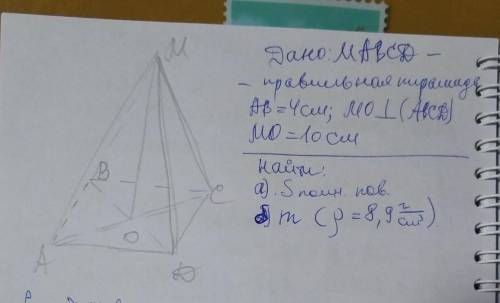 M
B
C
O
A
D
Дано: MABCD –
– правильная пирамида
AB = 4см; MO⊥(ABCD)
MO = 10см
Найти:
а). Sполн. пов.
б) m (ρ = 8,9 г/см³).